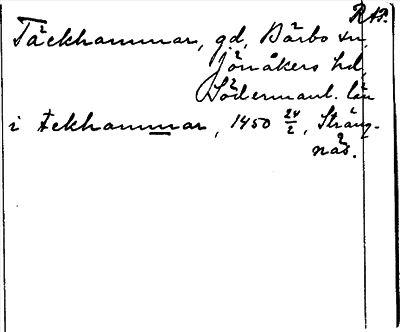 RAp.
Täckhammar, gd, Bärbo sn,
Jönåkers hd,
Södermanl. län
i tekhammar, 1450 24/2, Sträng-
näs.